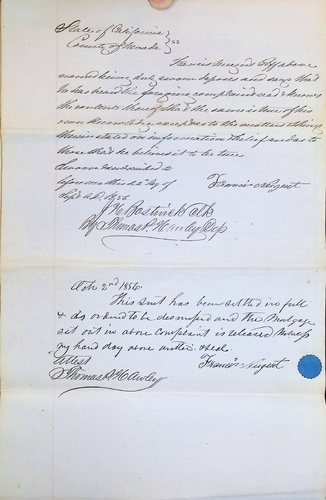 State of California } ss
County of Nevada }
Francis Nugent Plff above
named being duly sworn deposes and says that
he has heard the foregoing complaint read & knows
the contents thereof that the same is true of his
own knowledge except as to the matters & things
therein stated on information & belief and as to
those that he believes it to be true
Sworn & subscribed to
before me this 2d day of Francis Nugent
Sept A.D. 1856
Clk
By Thomas P. Hawley Dep
Oct 2nd 1856
This suit has been settled in full
& is ordered to be dismissed and the Mortgage
set out in above complaint is released Witness
my hand day above written & seal
Attest Francis Nugent
Thomas P. Hawley